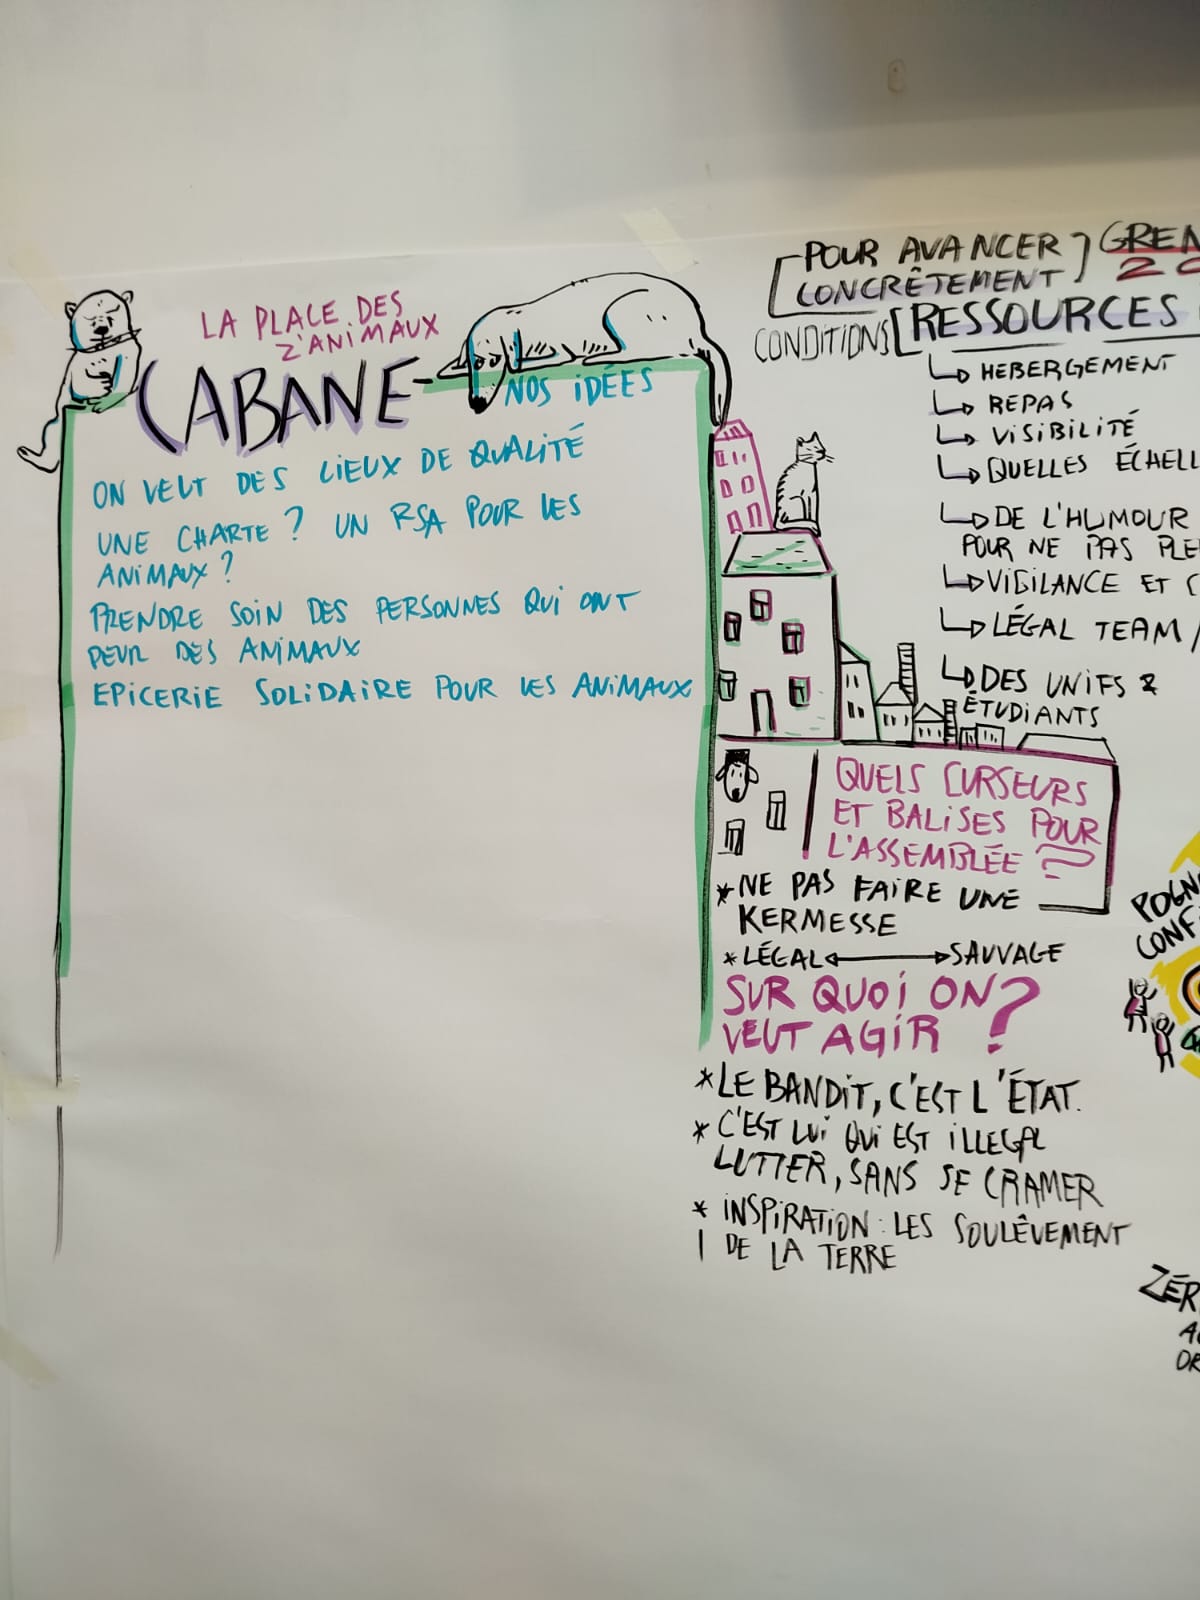 LA PLACE DES
Z'ANIMAUX
CABANE
NOS IDÉES
ON VEUT DES LIEUX DE QUALITÉ
UNE CHARTE ? UN RSA POUR LES
ANIMAUX ?
PRENDRE SOIN DES PERSONNES QUI ONT
PEUR DES ANIMAUX
EPICERIE SOLIDAIRE POUR LES ANIMAUX
[POUR AVANCER
CONCRÊTEMENT]
CONDITIONS [RESSOURCES
HEBERGEMENT
REPAS
VISIBILITÉ
QUELLES
DE L'HUMOUR
POUR NE PAS
VIGILANCE ET
LÉGAL TEAM /
DES UNIFS &
ÉTUDIANTS
QUELS CURSEURS
ET BALISES POUR
L'ASSEMBLÉE ?
* NE PAS FAIRE UNE
KERMESSE
* LÉGAL ↔ SAUVAGE
SUR QUOI ON
VEUT AGIR ?
* LE BANDIT, C'EST L'ÉTAT.
* C'EST LUI QUI EST ILLEGAL
LUTTER, SANS SE CRAMER
* INSPIRATION : LES SOULÊVEMENT
DE LA TERRE